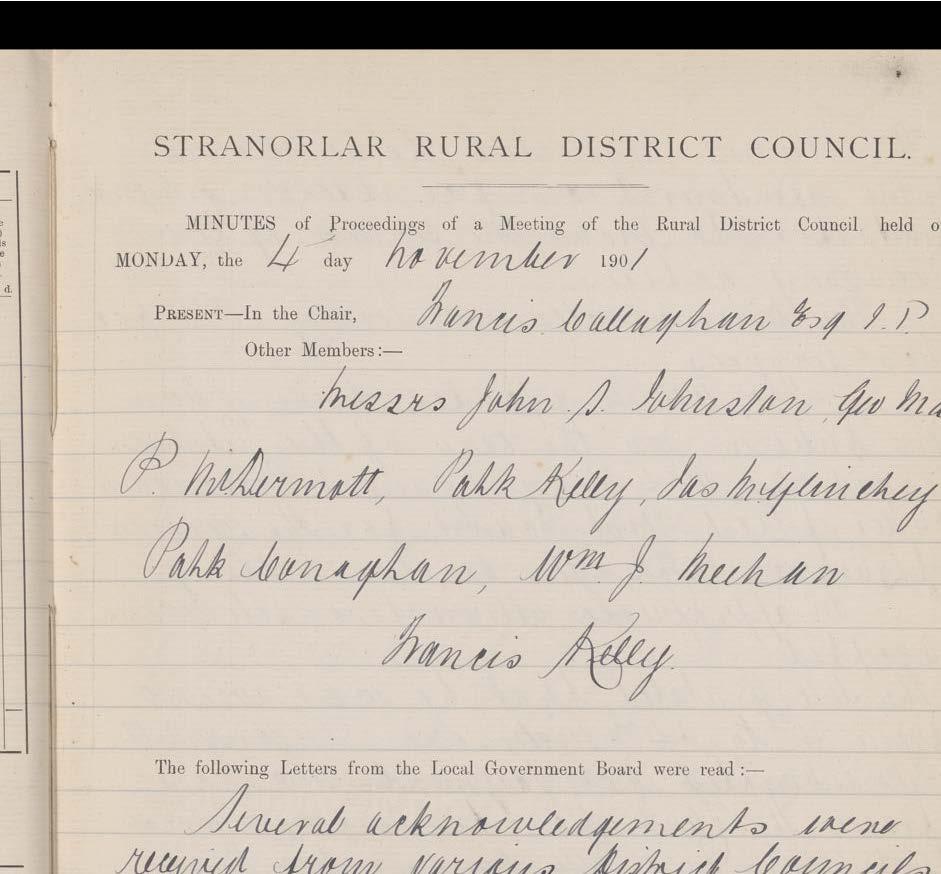 STRANORLAR RURAL DISTRICT COUNCIL.
MINUTES of Proceedings of a Meeting of the Rural District Council held
MONDAY, the 4 day November 1901
PRESENT—In the Chair, Francis Callaghan Esq J.P
Other Members:—
Messrs John S. Johnston, Geo
P. McDermott, Patk Kelly, Jas McGlinchey
Patk Conaghan, Wm J. Meehan
Francis Kelly.
The following Letters from the Local Government Board were read :—
Several acknowledgements were
received from various District Councils